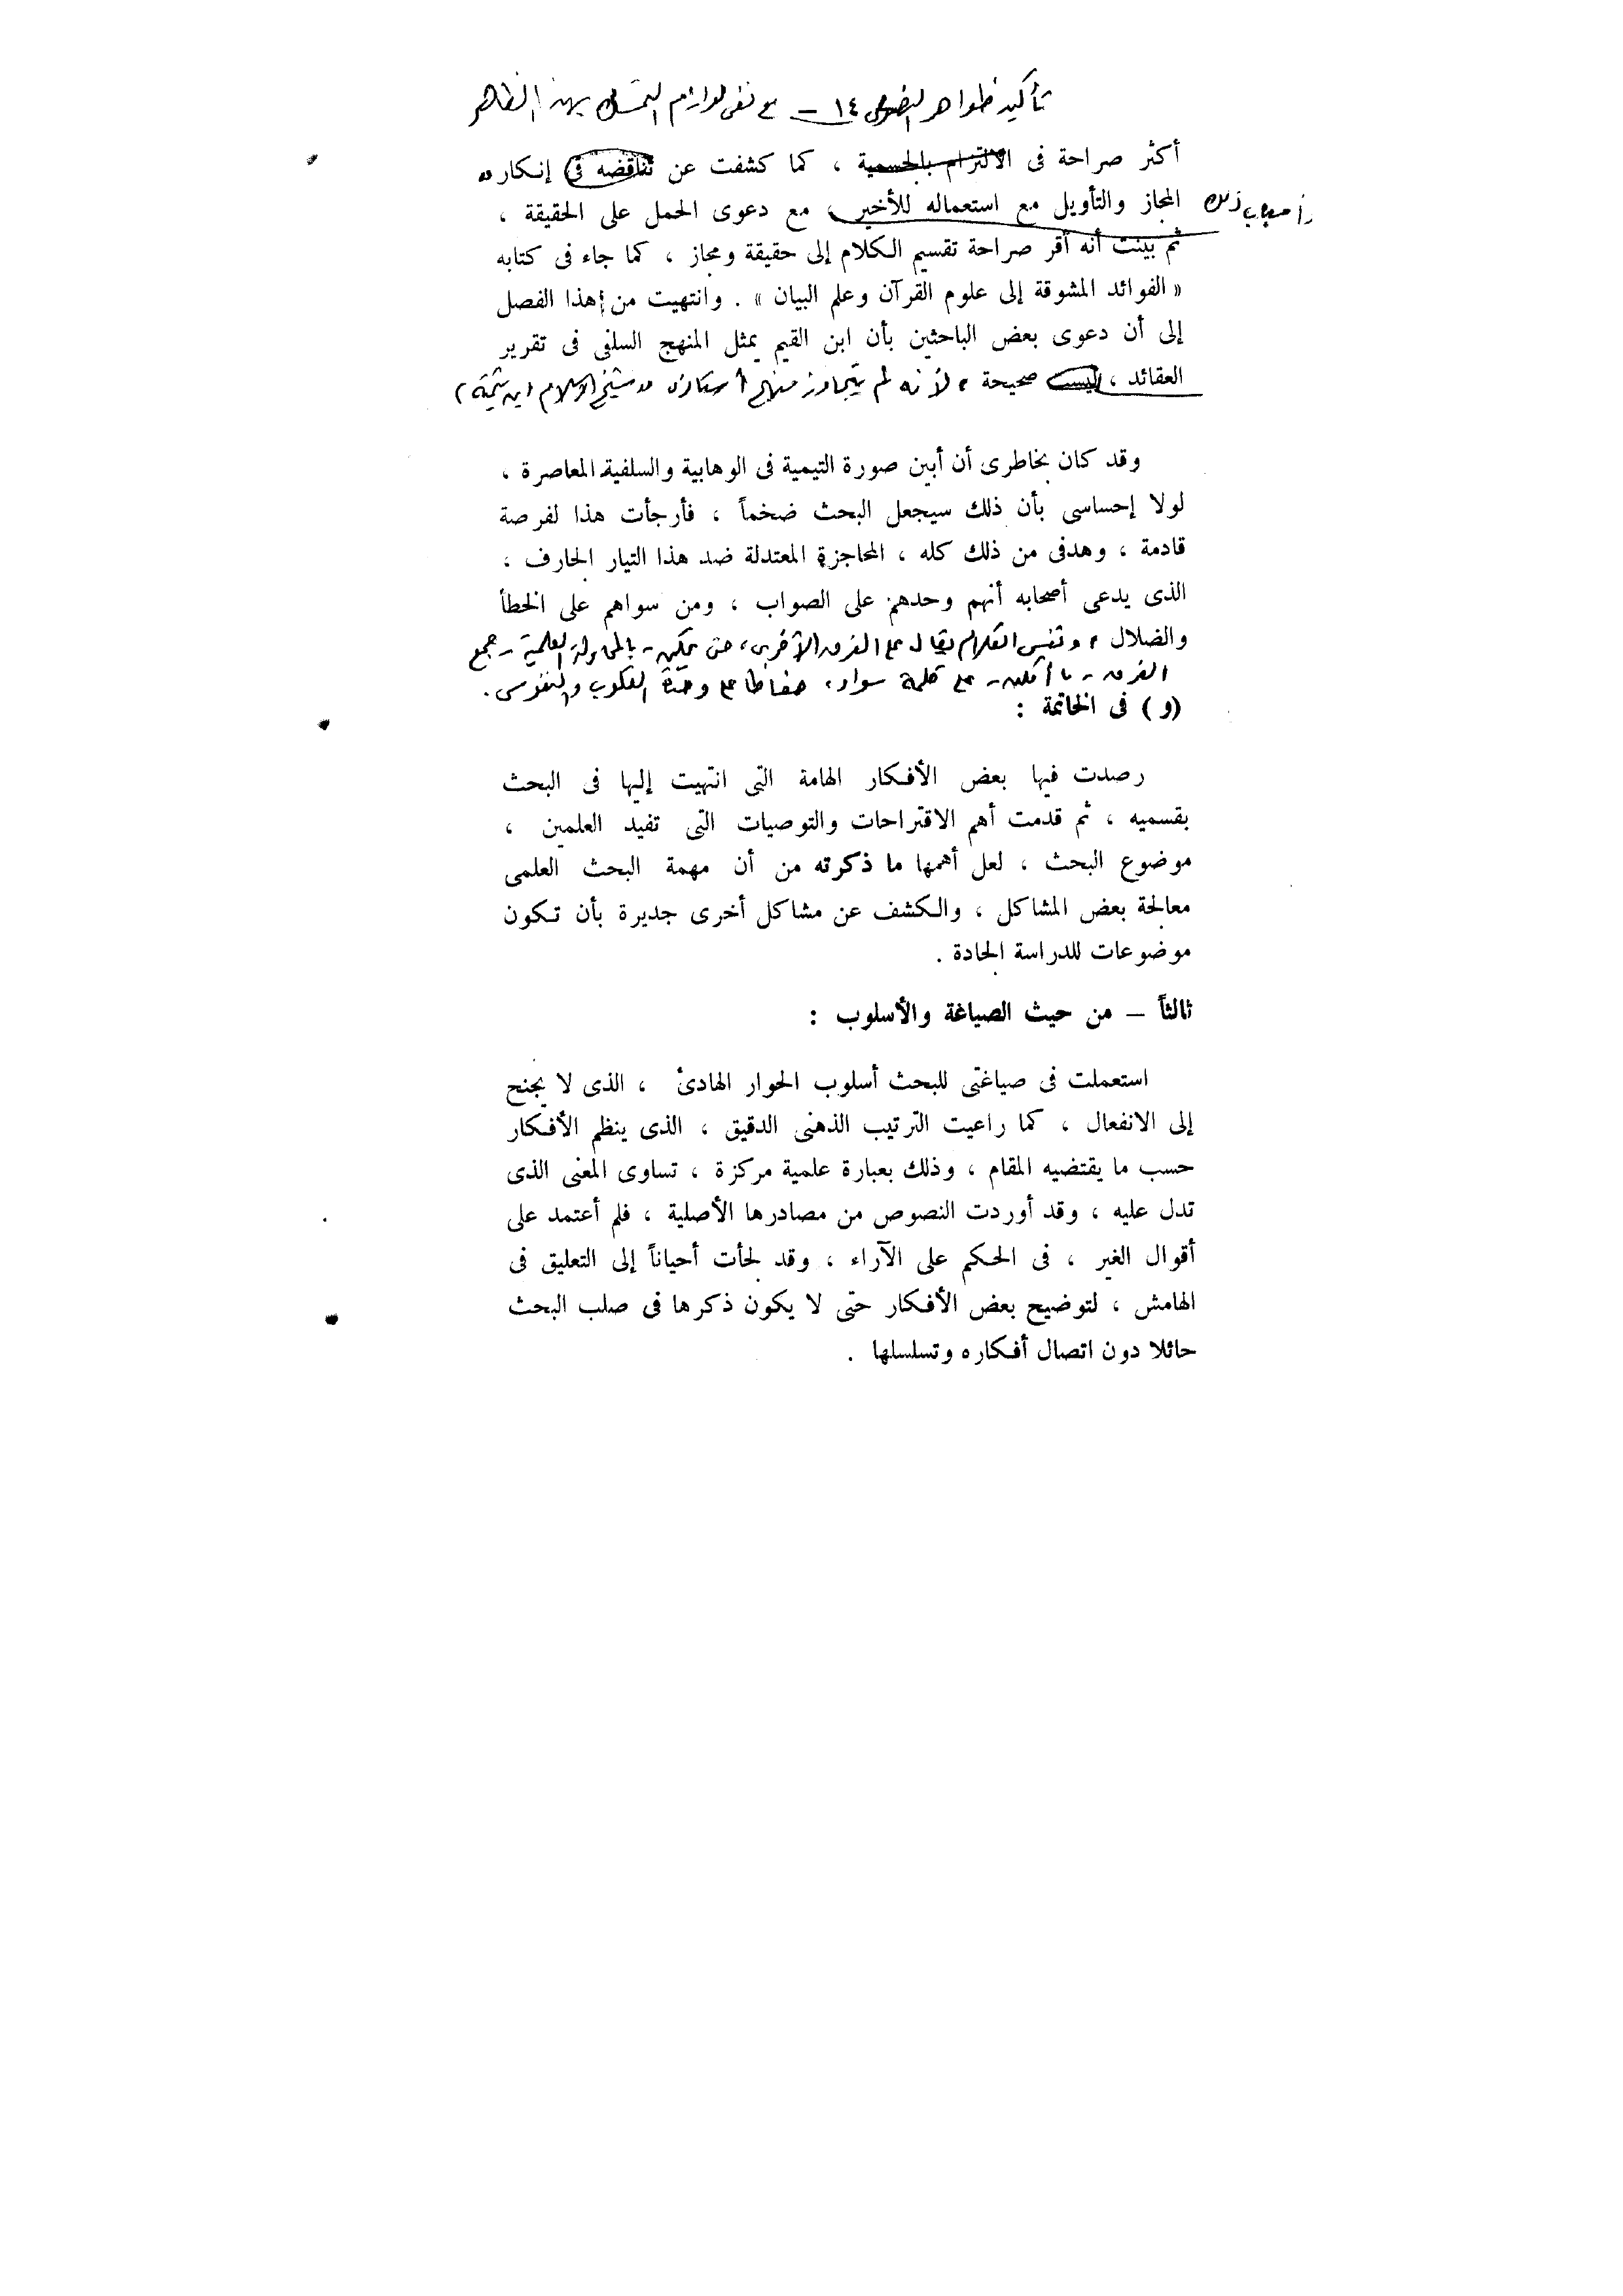 تأكيد ظواهر النصوص ١٤ – مع نفى لوازم التمسك بهذا الظاهر
أكثر صراحة فى الالتزام بالجسمية ، كما كشفت عن تناقضه فى إنكاره
المجاز والتأويل مع استعماله للأخير ، مع دعوى الحمل على الحقيقة ،
ثم بينت أنه أقر صراحة تقسيم الكلام إلى حقيقة ومجاز ، كما جاء فى كتابه
« الفوائد المشوقة إلى علوم القرآن وعلم البيان » . وانتهيت من هذا الفصل
إلى أن دعوى بعض الباحثين بأن ابن القيم يمثل المنهج السلفى فى تقرير
العقائد ، ليست صحيحة ، لأنه لم يتجاوز منهج أستاذه شيخ الإسلام ابن تيمية )
وقد كان بخاطرى أن أبين صورة التيمية فى الوهابية والسلفية المعاصرة ،
لولا إحساسى بأن ذلك سيجعل البحث ضخماً ، فأرجأت هذا لفرصة
قادمة ، وهدفى من ذلك كله ، المحاجزة المعتدلة ضد هذا التيار الجارف ،
الذى يدعى أصحابه أنهم وحدهم على الصواب ، ومن سواهم على الخطأ
والضلال ، ونفس الكلام يقال على الفرق الأخرى ، حتى يمكن - بالمحاولة العلمية - جمع
الفرق - ما أمكن - على كلمة سواء ، حفاظا على وحدة القلوب والنفوس .
(و) فى الخاتمة :
رصدت فيها بعض الأفكار الهامة التى انتهيت إليها فى البحث
بقسميه ، ثم قدمت أهم الاقتراحات والتوصيات التى تفيد العلمين ،
موضوع البحث ، لعل أهمها ما ذكرته من أن مهمة البحث العلمى
معالجة بعض المشاكل ، والكشف عن مشاكل أخرى جديرة بأن تكون
موضوعات للدراسة الجادة .
ثالثاً – من حيث الصياغة والأسلوب :
استعملت فى صياغتى للبحث أسلوب الحوار الهادئ ، الذى لا يجنح
إلى الانفعال ، كما راعيت الترتيب الذهنى الدقيق ، الذى ينظم الأفكار
حسب ما يقتضيه المقام ، وذلك بعبارة علمية مركزة ، تساوى المعنى الذى
تدل عليه ، وقد أوردت النصوص من مصادرها الأصلية ، فلم أعتمد على
أقوال الغير ، فى الحكم على الآراء ، وقد لجأت أحياناً إلى التعليق فى
الهامش ، لتوضيح بعض الأفكار حتى لا يكون ذكرها فى صلب البحث
حائلا دون اتصال أفكاره وتسلسلها .